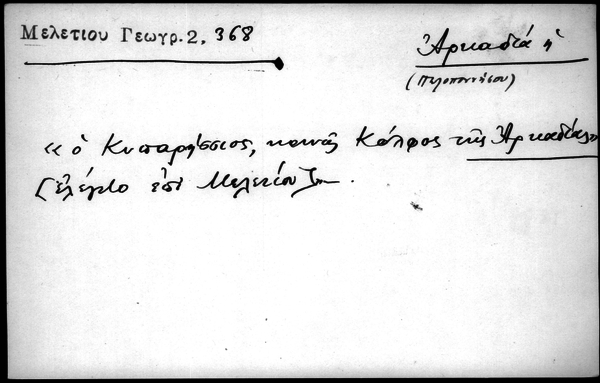 Μελετίου Γεωγρ. 2, 368
Ἀρκαδιά ἡ
(Πελοποννήσου)
« ὁ Κυπαρήσσιος, κοινῶς Κόλφος τῆς Ἀρκαδίας »
[ἐλέγετο ἐπὶ Μελετίου]